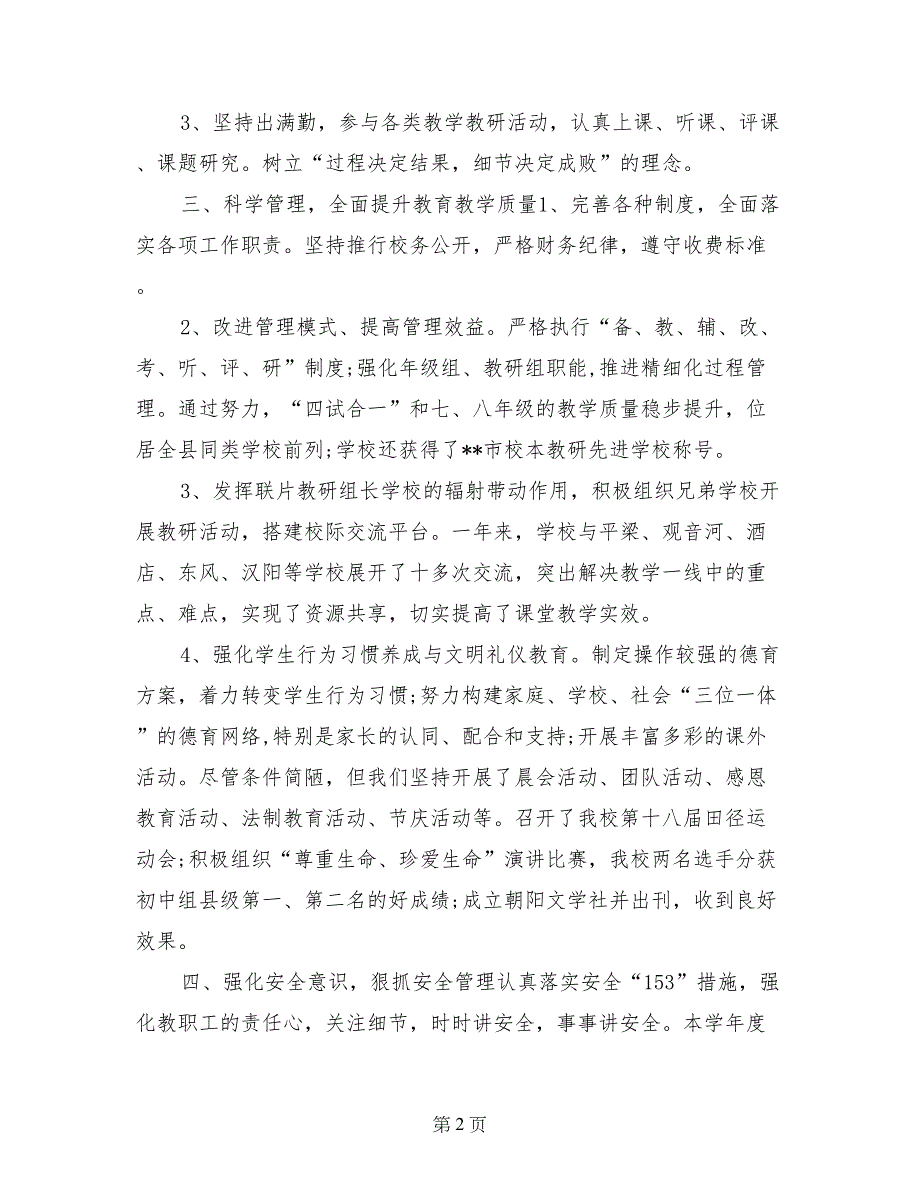 3、坚持出满勤，参与各类教学教研活动，认真上课、听课、评课
、课题研究。树立“过程决定结果，细节决定成败”的理念。
三、科学管理，全面提升教育教学质量1、完善各种制度，全面落
实各项工作职责。坚持推行校务公开，严格财务纪律，遵守收费标准
。
2、改进管理模式、提高管理效益。严格执行“备、教、辅、改、
考、听、评、研”制度;强化年级组、教研组职能,推进精细化过程管
理。通过努力，“四试合一”和七、八年级的教学质量稳步提升，位
居全县同类学校前列;学校还获得了**市校本教研先进学校称号。
3、发挥联片教研组长学校的辐射带动作用，积极组织兄弟学校开
展教研活动，搭建校际交流平台。一年来，学校与平梁、观音河、酒
店、东风、汉阳等学校展开了十多次交流，突出解决教学一线中的重
点、难点，实现了资源共享，切实提高了课堂教学实效。
4、强化学生行为习惯养成与文明礼仪教育。制定操作较强的德育
方案，着力转变学生行为习惯;努力构建家庭、学校、社会“三位一体
”的德育网络,特别是家长的认同、配合和支持;开展丰富多彩的课外
活动。尽管条件简陋，但我们坚持开展了晨会活动、团队活动、感恩
教育活动、法制教育活动、节庆活动等。召开了我校第十八届田径运
动会;积极组织“尊重生命、珍爱生命”演讲比赛，我校两名选手分获
初中组县级第一、第二名的好成绩;成立朝阳文学社并出刊，收到良好
效果。
四、强化安全意识，狠抓安全管理认真落实安全“153”措施，强
化教职工的责任心，关注细节，时时讲安全，事事讲安全。本学年度
第 2 页